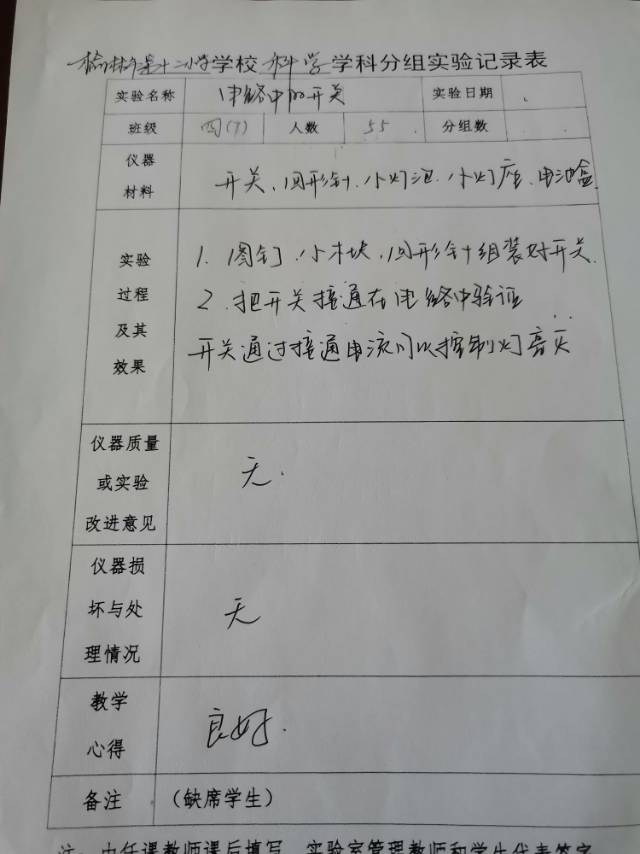 榆林市第十二小学学校 科学 学科分组实验记录表
实验名称 电路中的开关 实验日期
班级 四(7) 人数 55 分组数
仪器
材料
开关、回形针、小灯泡、小灯座、电池盒
实验
过程
及其
效果
1. 图钉、小木块、回形针组装好开关.
2. 把开关接通在电路中验证
开关通过接通电流可以控制灯亮灭
仪器质量
或实验
改进意见
无.
仪器损
坏与处
理情况
无
教学
心得
良好.
备注 (缺席学生)
注:由任课教师课后填写,实验室管理教师和学生代表签字